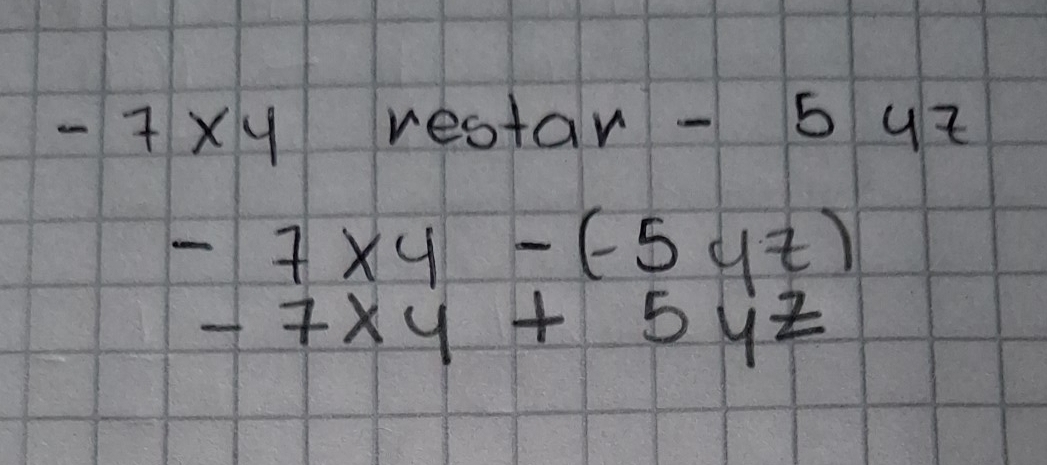 - 7xy restar - 5 yz
- 7xy - (-5 yz)
- 7xy + 5 yz